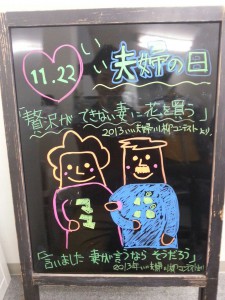 11.22
いい夫婦の日
「贅沢が できない妻に 花を買う」
2013いい夫婦川柳コンテストより。
「言いました 妻が言うなら そうだろう」
2013年いい夫婦川柳コンテストより